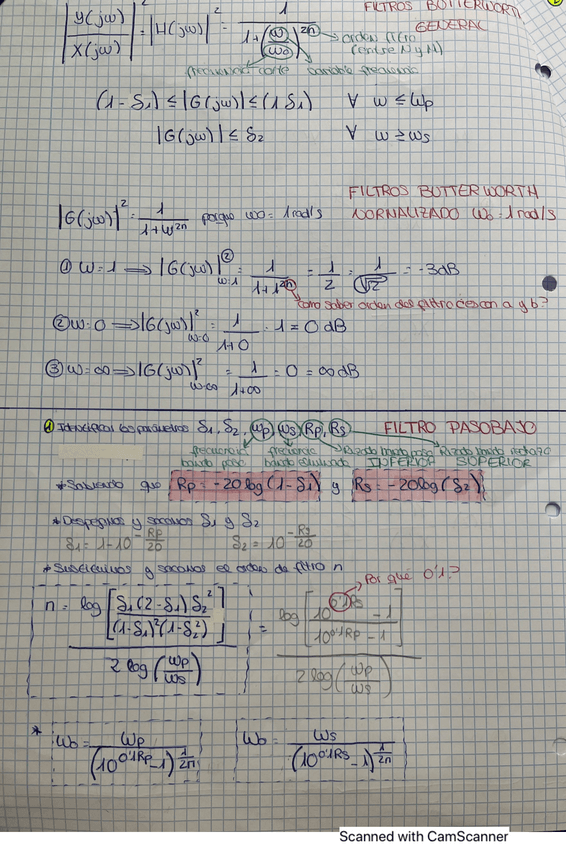 |Y(jω)/X(jω)|² = |H(jω)|² = 1/(1+(ω/ω0)^2n) → orden filtro (entre N y M)
FILTROS BUTTERWORTH GENERAL
frecuencia corte variable frecuencia
(1-δ1) ≤ |G(jω)| ≤ (1 δ1) ∀ ω ≤ ωp
|G(jω)| ≤ δ2 ∀ ω ≥ ωs
FILTROS BUTTERWORTH
|G(jω)|² = 1/(1+ω^2n) porque ω0 = 1rad/s NORMALIZADO ω0 = 1rad/s
① ω=1 ⟹ |G(jω)|²_ω=1 = 1/(1+1^2n) = 1/2 = 1/√2 = -3dB
como saber orden del filtro con a y b?
② ω=0 ⟹ |G(jω)|²_ω=0 = 1/(1+0) = 1 = 0 dB
③ ω=∞ ⟹ |G(jω)|²_ω=∞ = 1/(1+∞) = 0 = ∞ dB
① Identificar los parámetros δ1, δ2, ωp, ωs, Rp, Rs FILTRO PASOBAJO
frecuencia frecuencia Rizado banda paso Rizado banda rechazo
banda paso banda INFERIOR SUPERIOR
*Sabiendo que Rp = -20log(1-δ1) y Rs = -20log(δ2)
*Despejamos y sacamos δ1 y δ2
δ1 = 1-10^(-Rp/20) δ2 = 10^(-Rs/20)
*Sustituimos y sacamos el orden de filtro n
Por qué 0'1?
n = log[δ1(2-δ1)δ2²/((1-δ1)²(1-δ2²))] / 2log(ωp/ωs) = log[(10^0'1Rs - 1)/(10^0'1Rp - 1)] / 2log(ωp/ωs)
* ω0 = ωp/(10^0'1Rp - 1)^(1/2n) ω0 = ωs/(10^0'1Rs - 1)^(1/2n)
Scanned with CamScanner